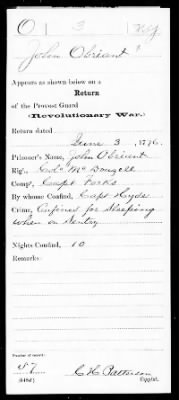 O 3 N.Y.
John Obriant
Appears as shown below on a
Return
of the Provost Guard
(Revolutionary War.)
Return dated
June 3, 1776.
Prisoner's Name, John Obriant
Rig't, Col. McDougall
Comp'y, Capt Forks
By whome Confind, Capt Hyde
Crime, Confined for Sleeping
when on Sentry
Nights Confind, 10
Remarks:
Number of record:
57
C H Patterson
Copyist.